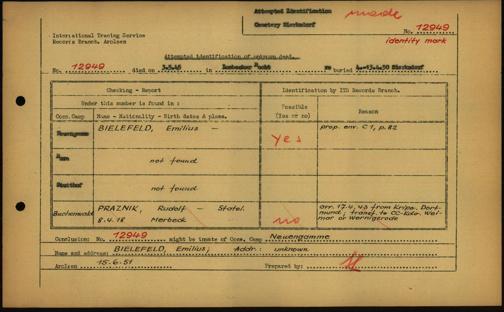 Attempted Identification
Cemetery Sierksdorf
made
No. 12949
identity mark
International Tracing Service
Records Branch, Arolsen
Attempted identification of unknown dead.
No. 12949 died on 3.5.45 in Luebecker Bucht re buried 4.-13.4.50 Sierksdorf
Checking - Report
Under this number is found in :
Conc.Camp Name - Nationality - Birth dates & place.
Identification by ITS Records Branch.
Possible
(Yes or no)
Reason
Neuengamme BIELEFELD, Emilius - Yes prop. env. C1, p. 82
not found
Stutthof not found
Buchenwald PRAZNIK, Rudolf - Statel. 8.4.18 Merbeck no arr. 17.4.43 from Kripo. Dort-
mund; transf. to CC-Kdr. Wei-
mar or Wernigerode
Conclusion: No. 12949 might be inmate of Conc. Camp Neuengamme
Name and address: BIELEFELD, Emilius; Addr.: unknown
Arolsen 15.6.51 Prepared by: